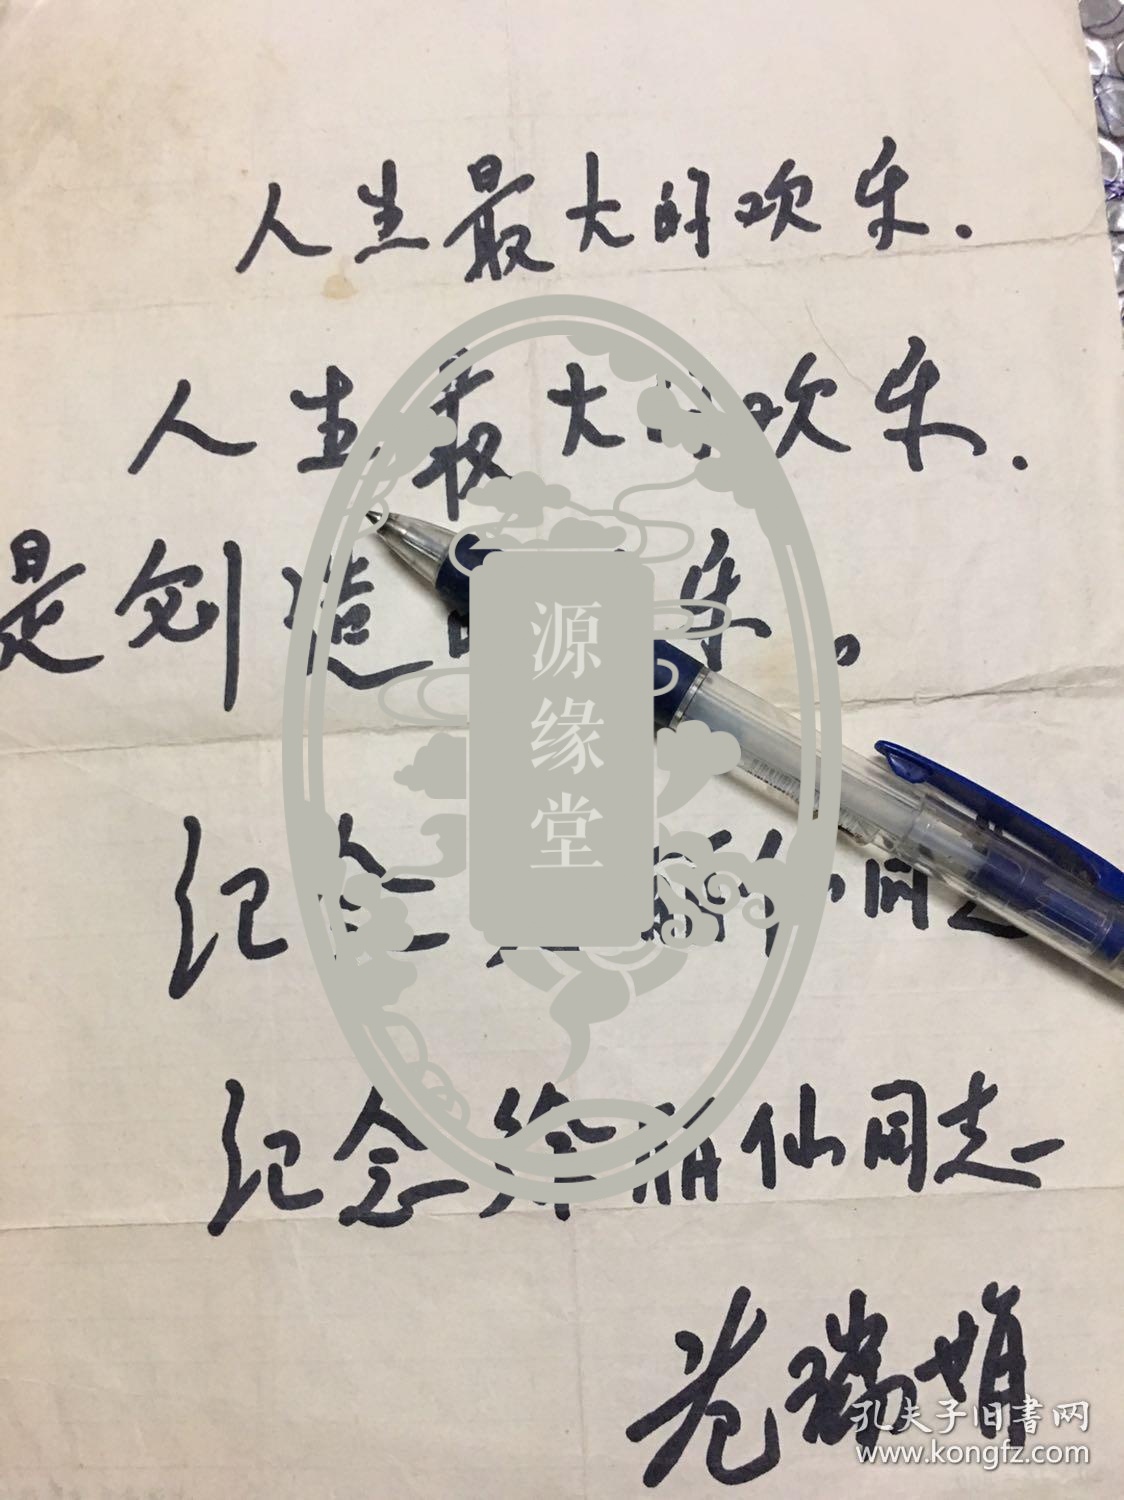 人生最大的欢乐.
人生最大的欢乐.
是创造的欢乐。
纪念徐丽仙同志
纪念徐丽仙同志
范瑞娟
源缘堂
孔夫子旧书网
www.kongfz.com